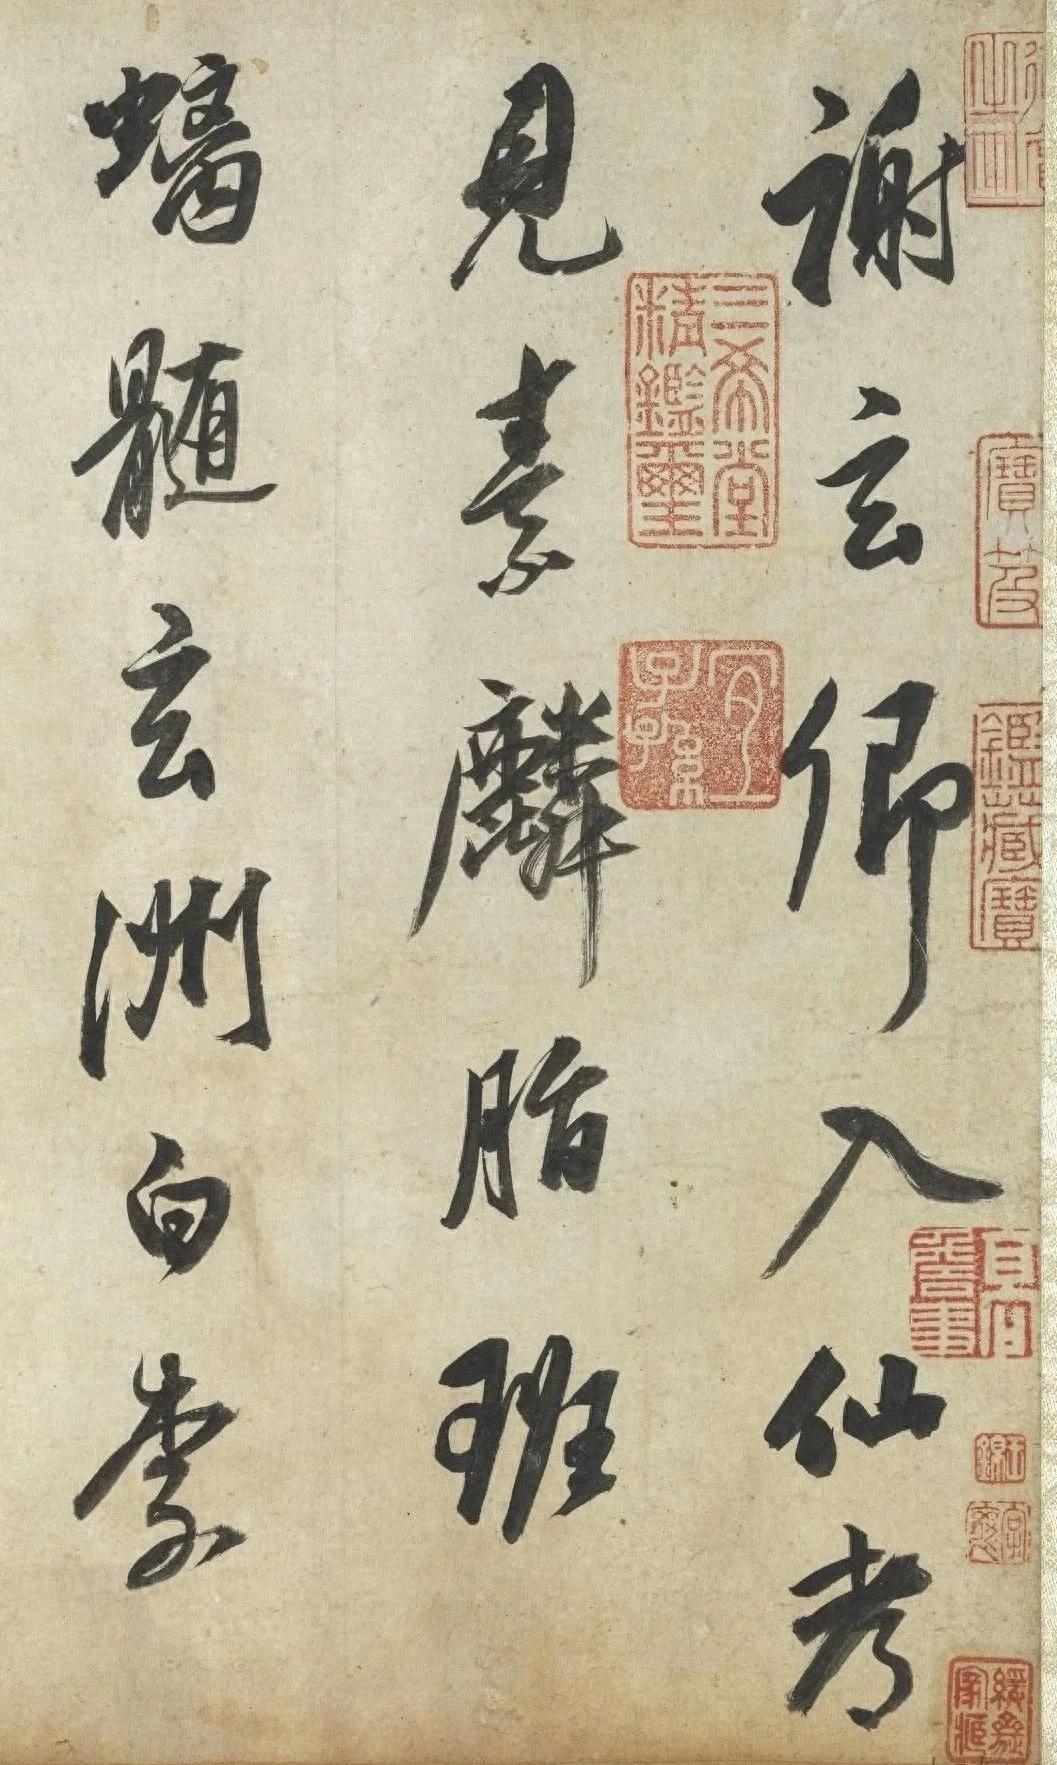 謝玄卿入仙考
見素麟脂班
螭髓玄洲白李
三希堂精鑑璽
宜子孫
寶笈
鑑藏寶